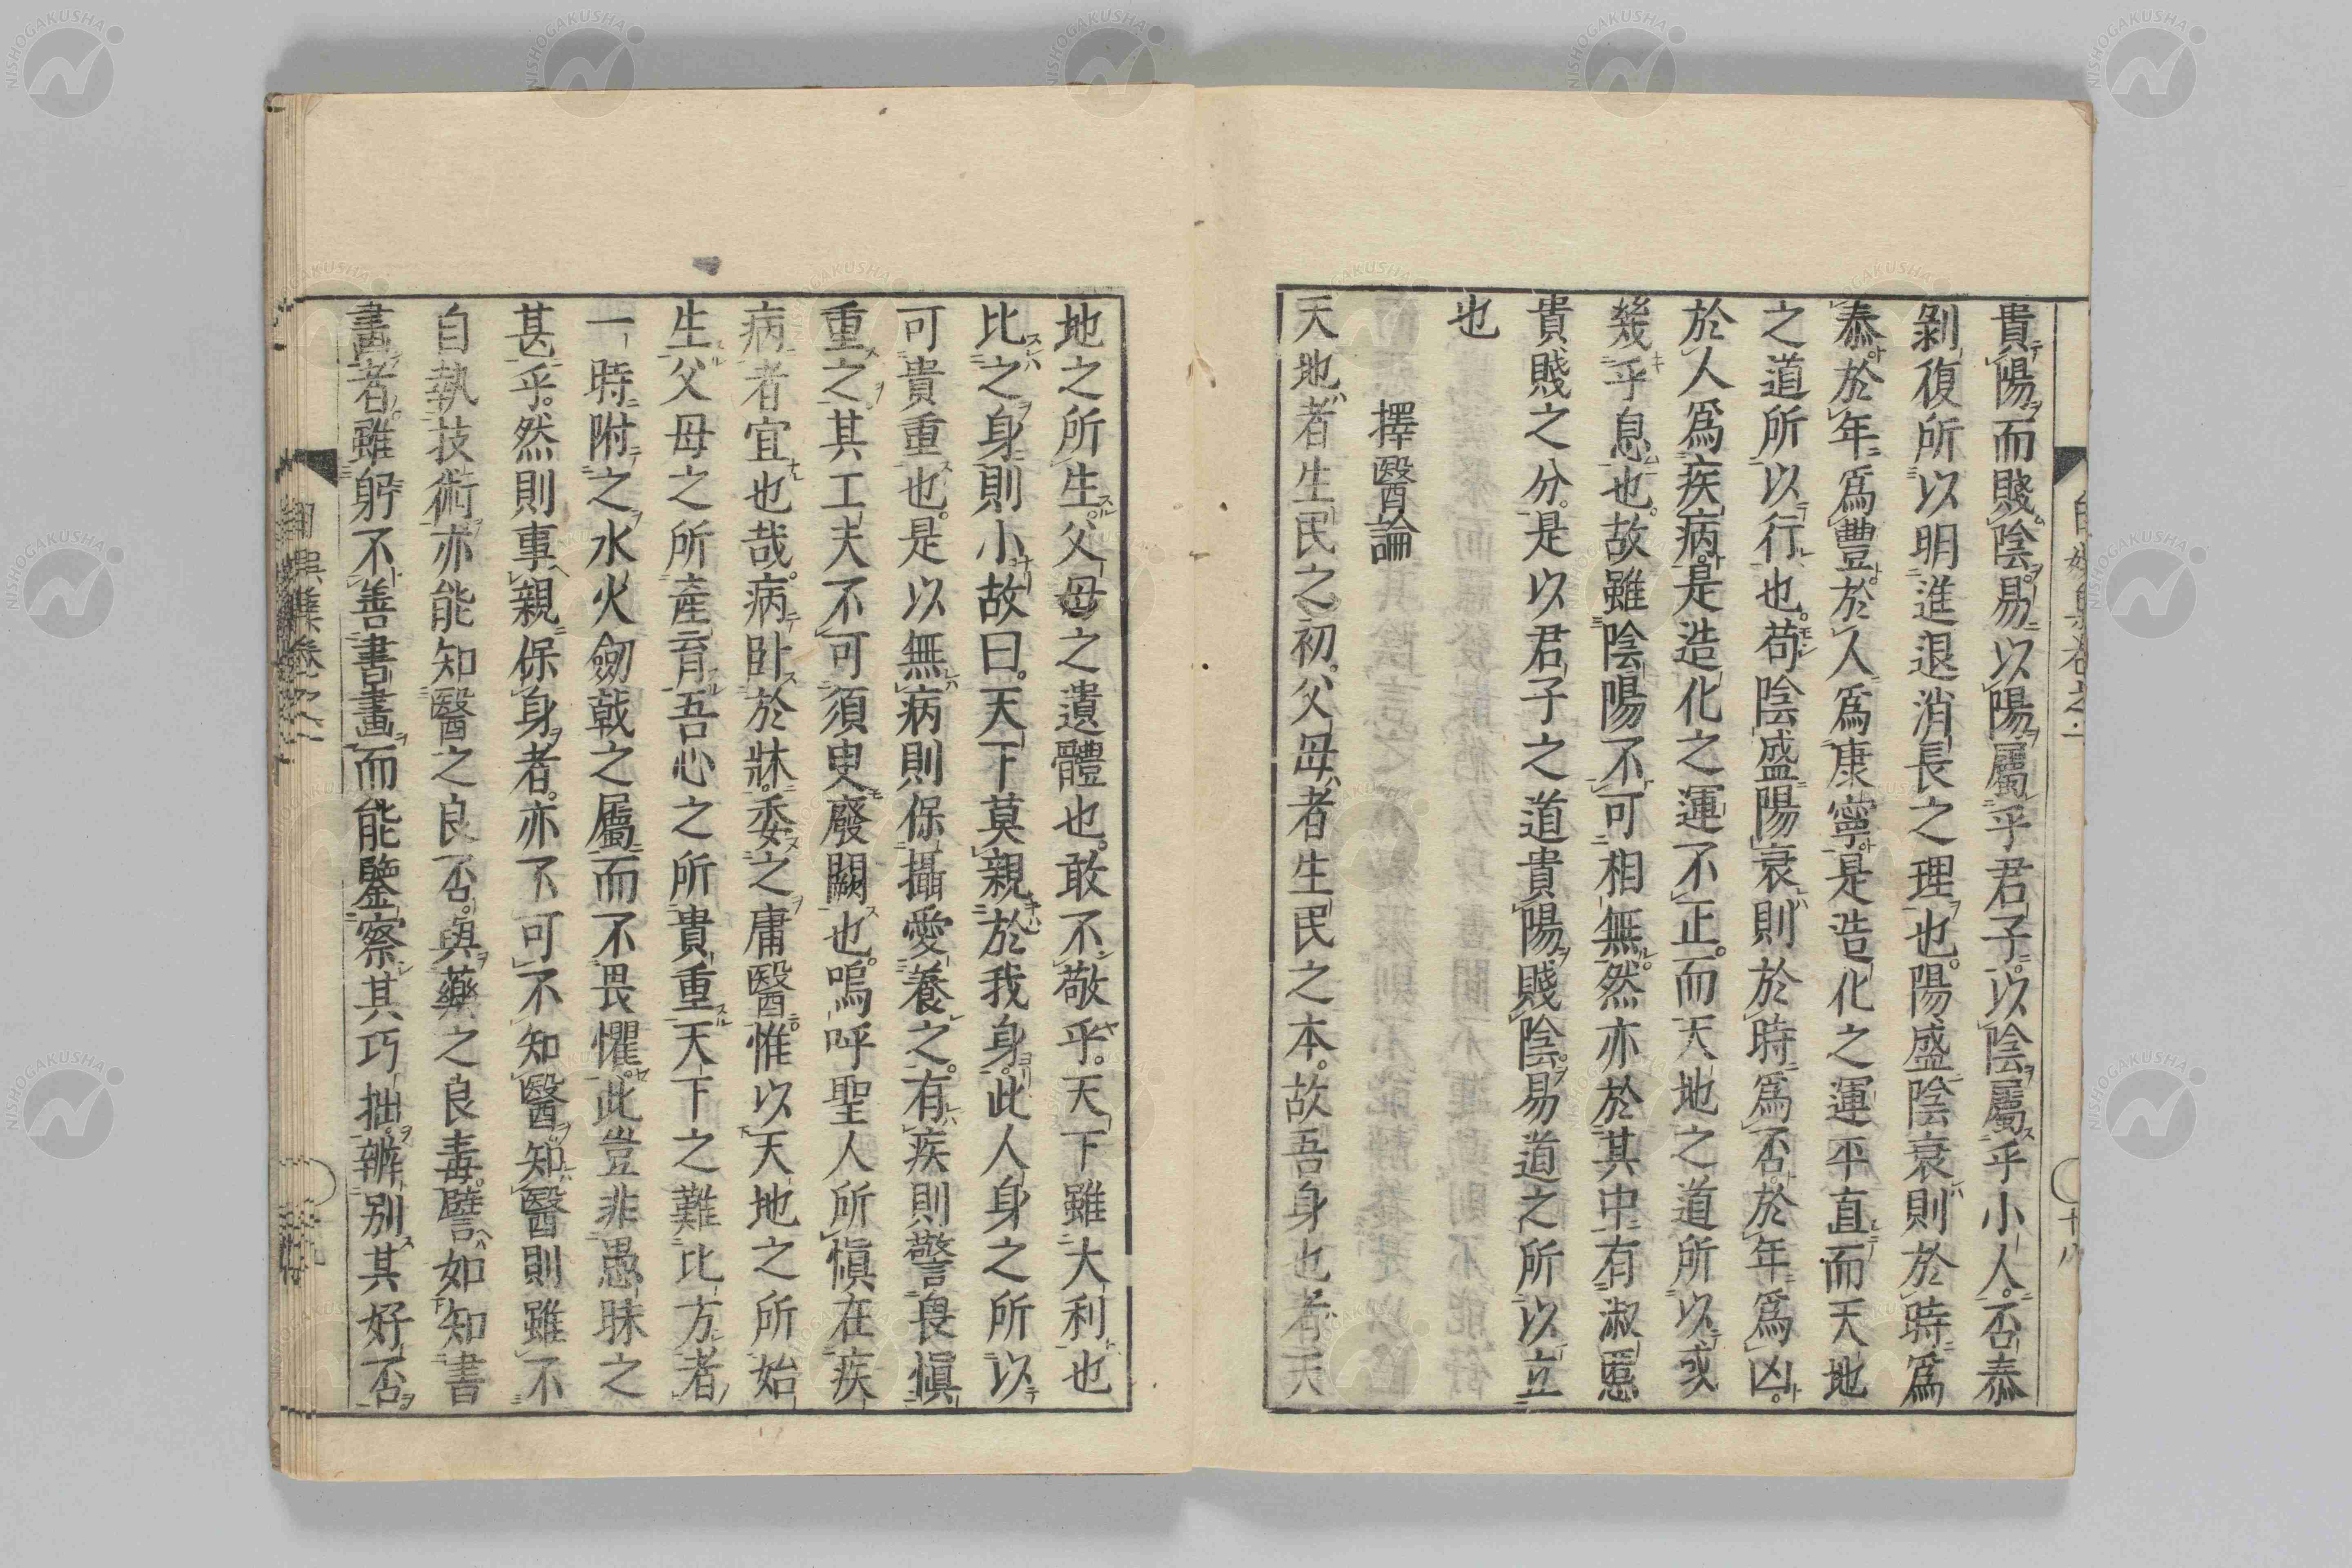 貴陽而賤陰。易以陽屬乎君子。以陰屬乎小人。否泰
剝復所以明進退消長之理也。陽盛陰衰則於時爲
泰於年爲豐於人爲康寧是造化之運平直而天地
之道所以行也。苟陰盛陽衰則於時爲否於年爲凶。
於人爲疾病。是造化之運不正。而天地之道所以或
幾乎息也。故雖陰陽不可相無。然亦於其中有淑慝
貴賤之分。是以君子之道貴陽賤陰。易道之所以立
也
擇醫論
天地者生民之初。父母者生民之本。故吾身也者天
地之所生。父母之遺體也。敢不敬乎。天下雖大利也
比之身則小故曰。天下莫親於我身。此人身之所以
可貴重也。是以無病則保攝愛養之。有疾則警畏愼
重之其工夫不可須臾廢闕也。嗚呼聖人所愼在疾
病者宜也哉。病臥於牀。委之庸醫惟以天地之所始
生父母之所產育吾心之所貴重天下之難比方者
一時附之水火劒戟之屬而不畏懼。此豈非愚昧之
甚乎。然則事親保身者。亦不可不知醫知醫則雖不
自執技術亦能知醫之良否。與藥之良毒。譬如知書
畫者。雖躬不善書畫而能鑒察其巧拙。辨别其好否
十八
NISHOGAKUSHA